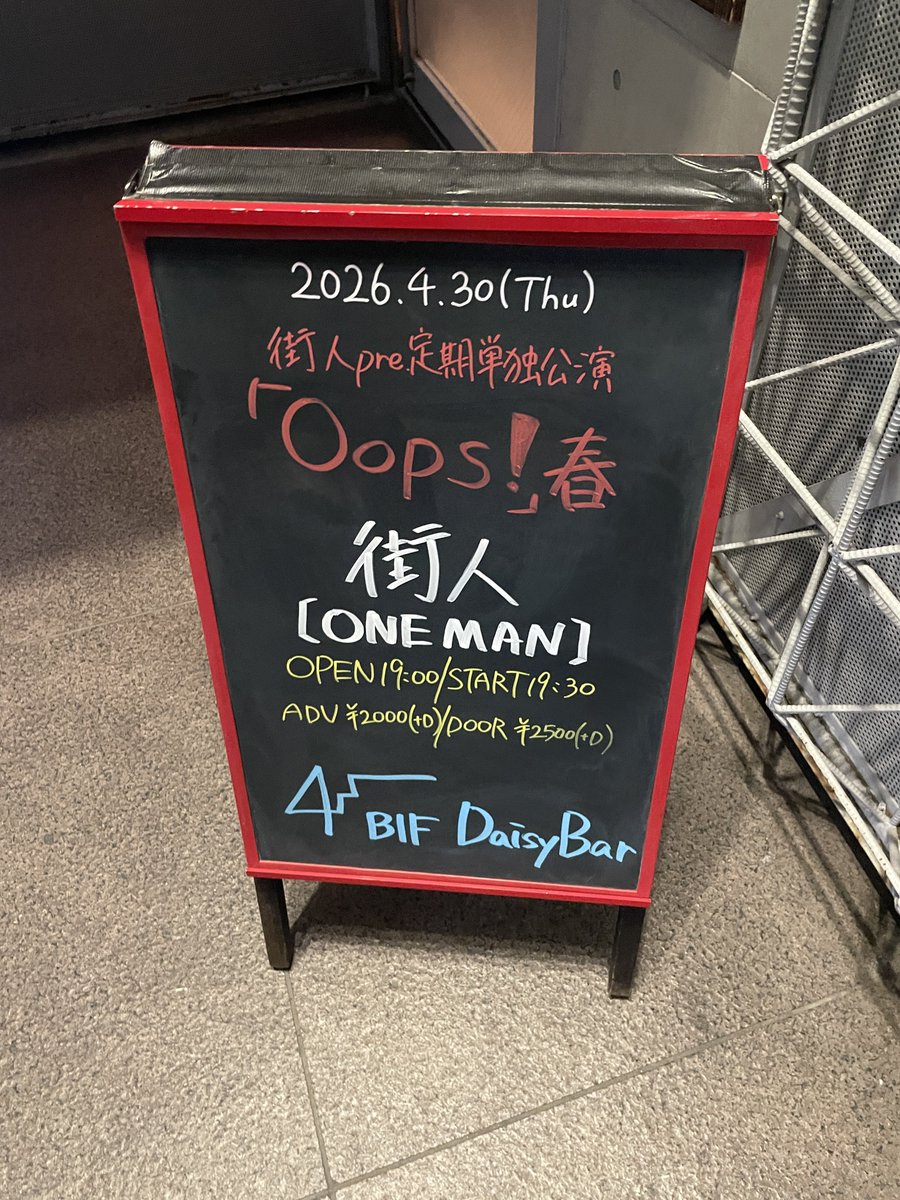 2026.4.30(Thu)
街人pre.定期単独公演
「Oops!」春
街人
[ONE MAN]
OPEN19:00/START19:30
ADV ¥2000(+D)/DOOR ¥2500(+D)
B1F DaisyBar